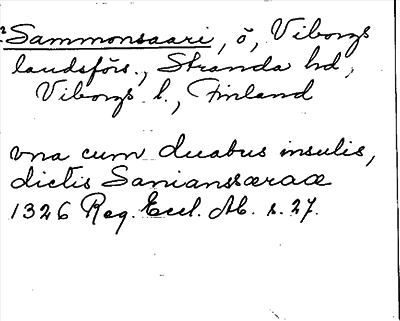 Sammonsaari, ö, Viborgs
landsförs., Stranda hd,
Viborgs l., Finland
vna cum duabus insulis,
dictis Sanianssæraæ
1326 Reg. Eccl. Ab. s. 27.